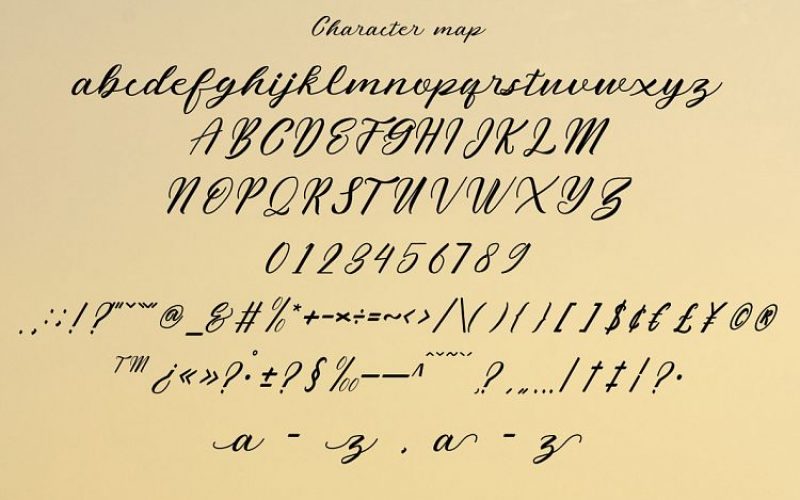 Character map
abcdefghijklmnopqrstuvwxyz
ABCDEFGHIJKLM
NOPQRSTUVWXYZ
0123456789
.,:;!?"'@_&#%*+-×÷=~<>/\(){}[]$¢€£¥©®
™¿«»?•°±?§‰–—^ˆˇ˜˘¯¸?‚„…/†‡|?·
a - z . a - z